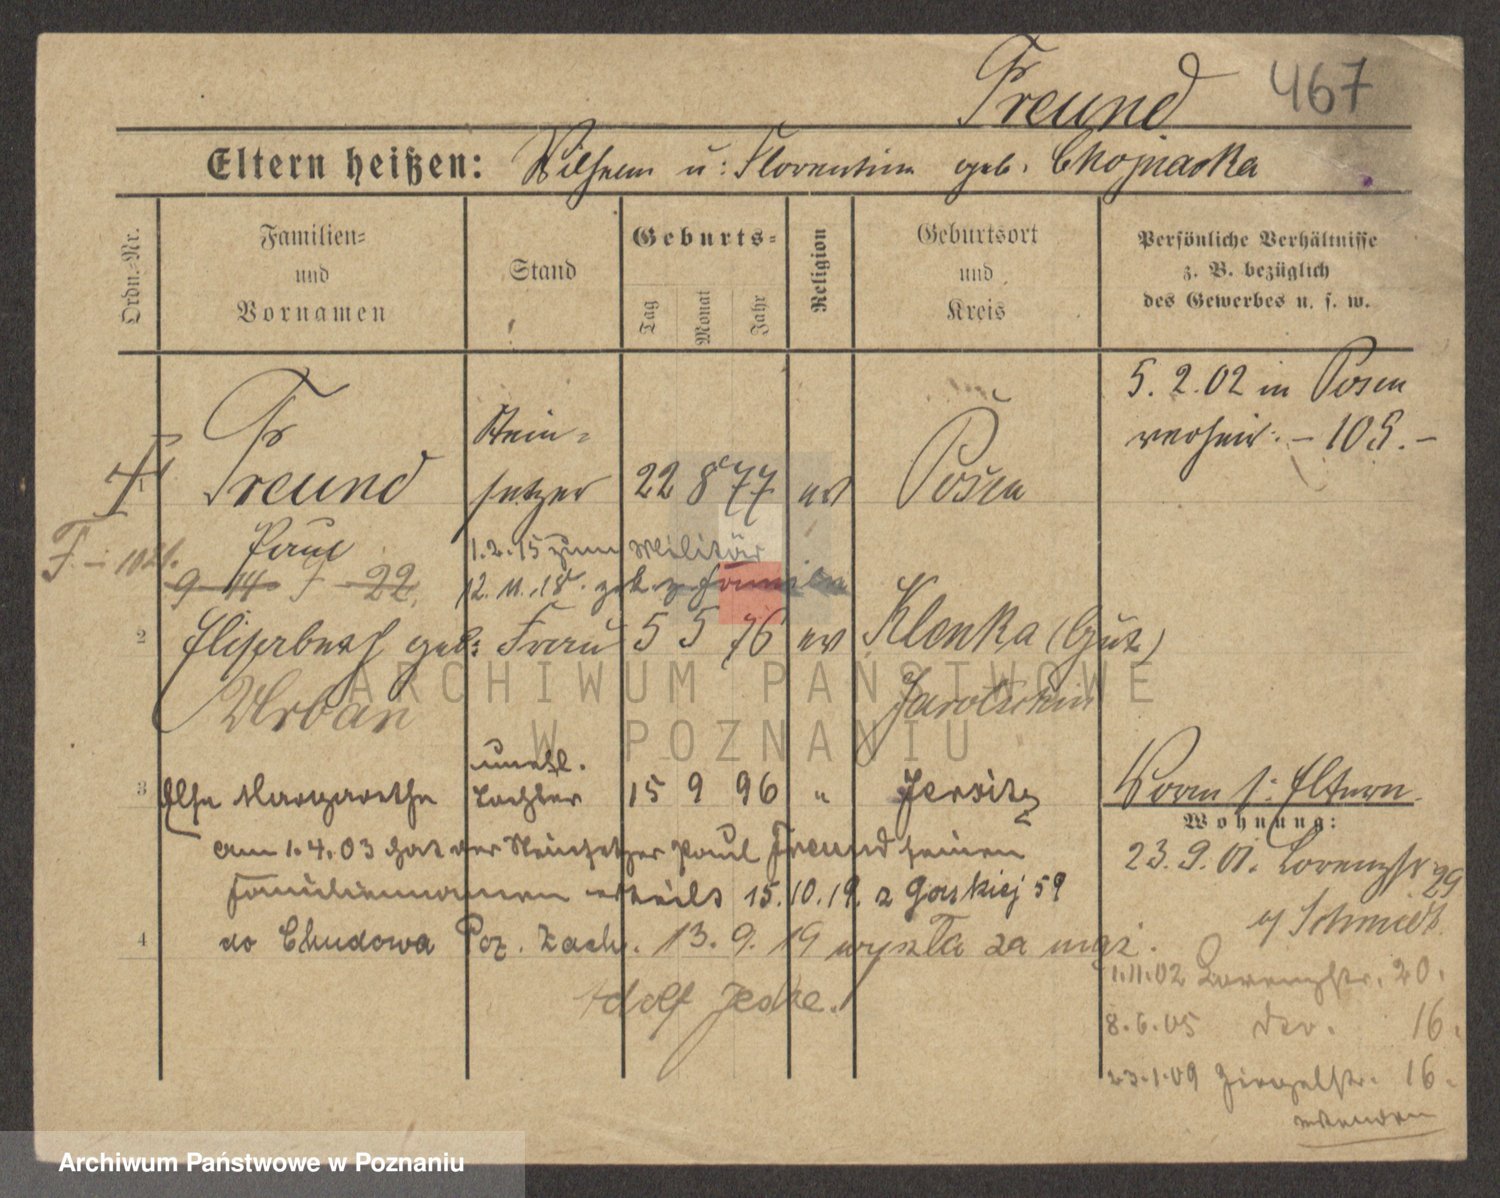 Freund 467
Eltern heißen: Wilhelm u: Florentine geb. Chojnacka
Ordn.-Nr.
Familien- und Vornamen
Stand
Geburts-
Tag Monat Jahr
Religion
Geburtsort und Kreis
Persönliche Verhältnisse z. B. bezüglich des Gewerbes u. s. w.
5.2.02 in Posen
verheir. – 105. –
Stein-
Freund setzer 22 8 77 ev Posen
Paul 1.2.15 zum Militär
9 14 F 22. 12.11.18. z. Familie
2 Elisabeth geb: Frau 5 5 76 ev Klenka (Gut)
Urban Jarotschin
unehl.
3 Else Margarethe Tochter 15 9 96 " Jersitz
Vorn s: Eltern
Wohnung:
am 1.4.03 hat der Steinsetzer Paul Freund seinen
23.9.01. Lorenzstr 29
Familiennamen erteilt 15.10.19 z Gąskiej 59
b/ Schmidt.
4 do Chudowa Poz. Zach. 13.9.19 wyszła za mąż.
1.11.02 Lorenzstr. 20.
Adolf Jeske.
8.6.05 der. 16.
23.1.09 Ziegelstr. 16.
wenden
ARCHIWUM PAŃSTWOWE
W POZNANIU
Archiwum Państwowe w Poznaniu